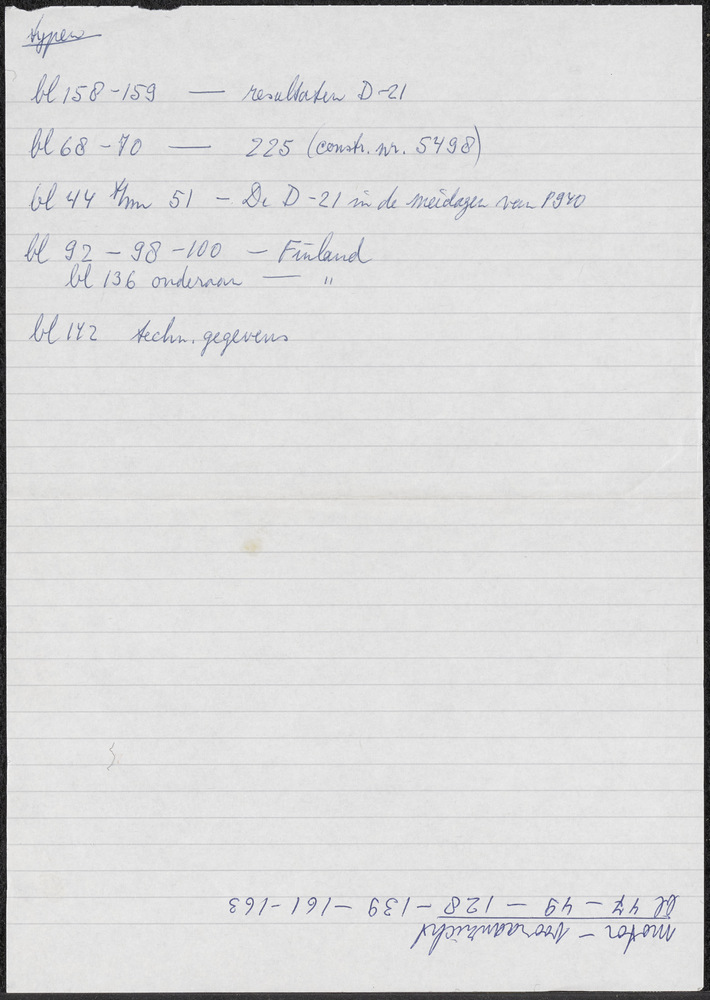 typen
bl 158-159 — resultaten D-21
bl 68 - 70 — 225 (constr. nr. 5498)
bl 44 t/m 51 - De D-21 in de meidagen van 1940
bl 92 - 98 - 100 - Finland
bl 136 onderaan — "
bl 142 techn. gegevens
motor - vooraanzicht
bl 47 - 49 - 128 - 139 - 161 - 163